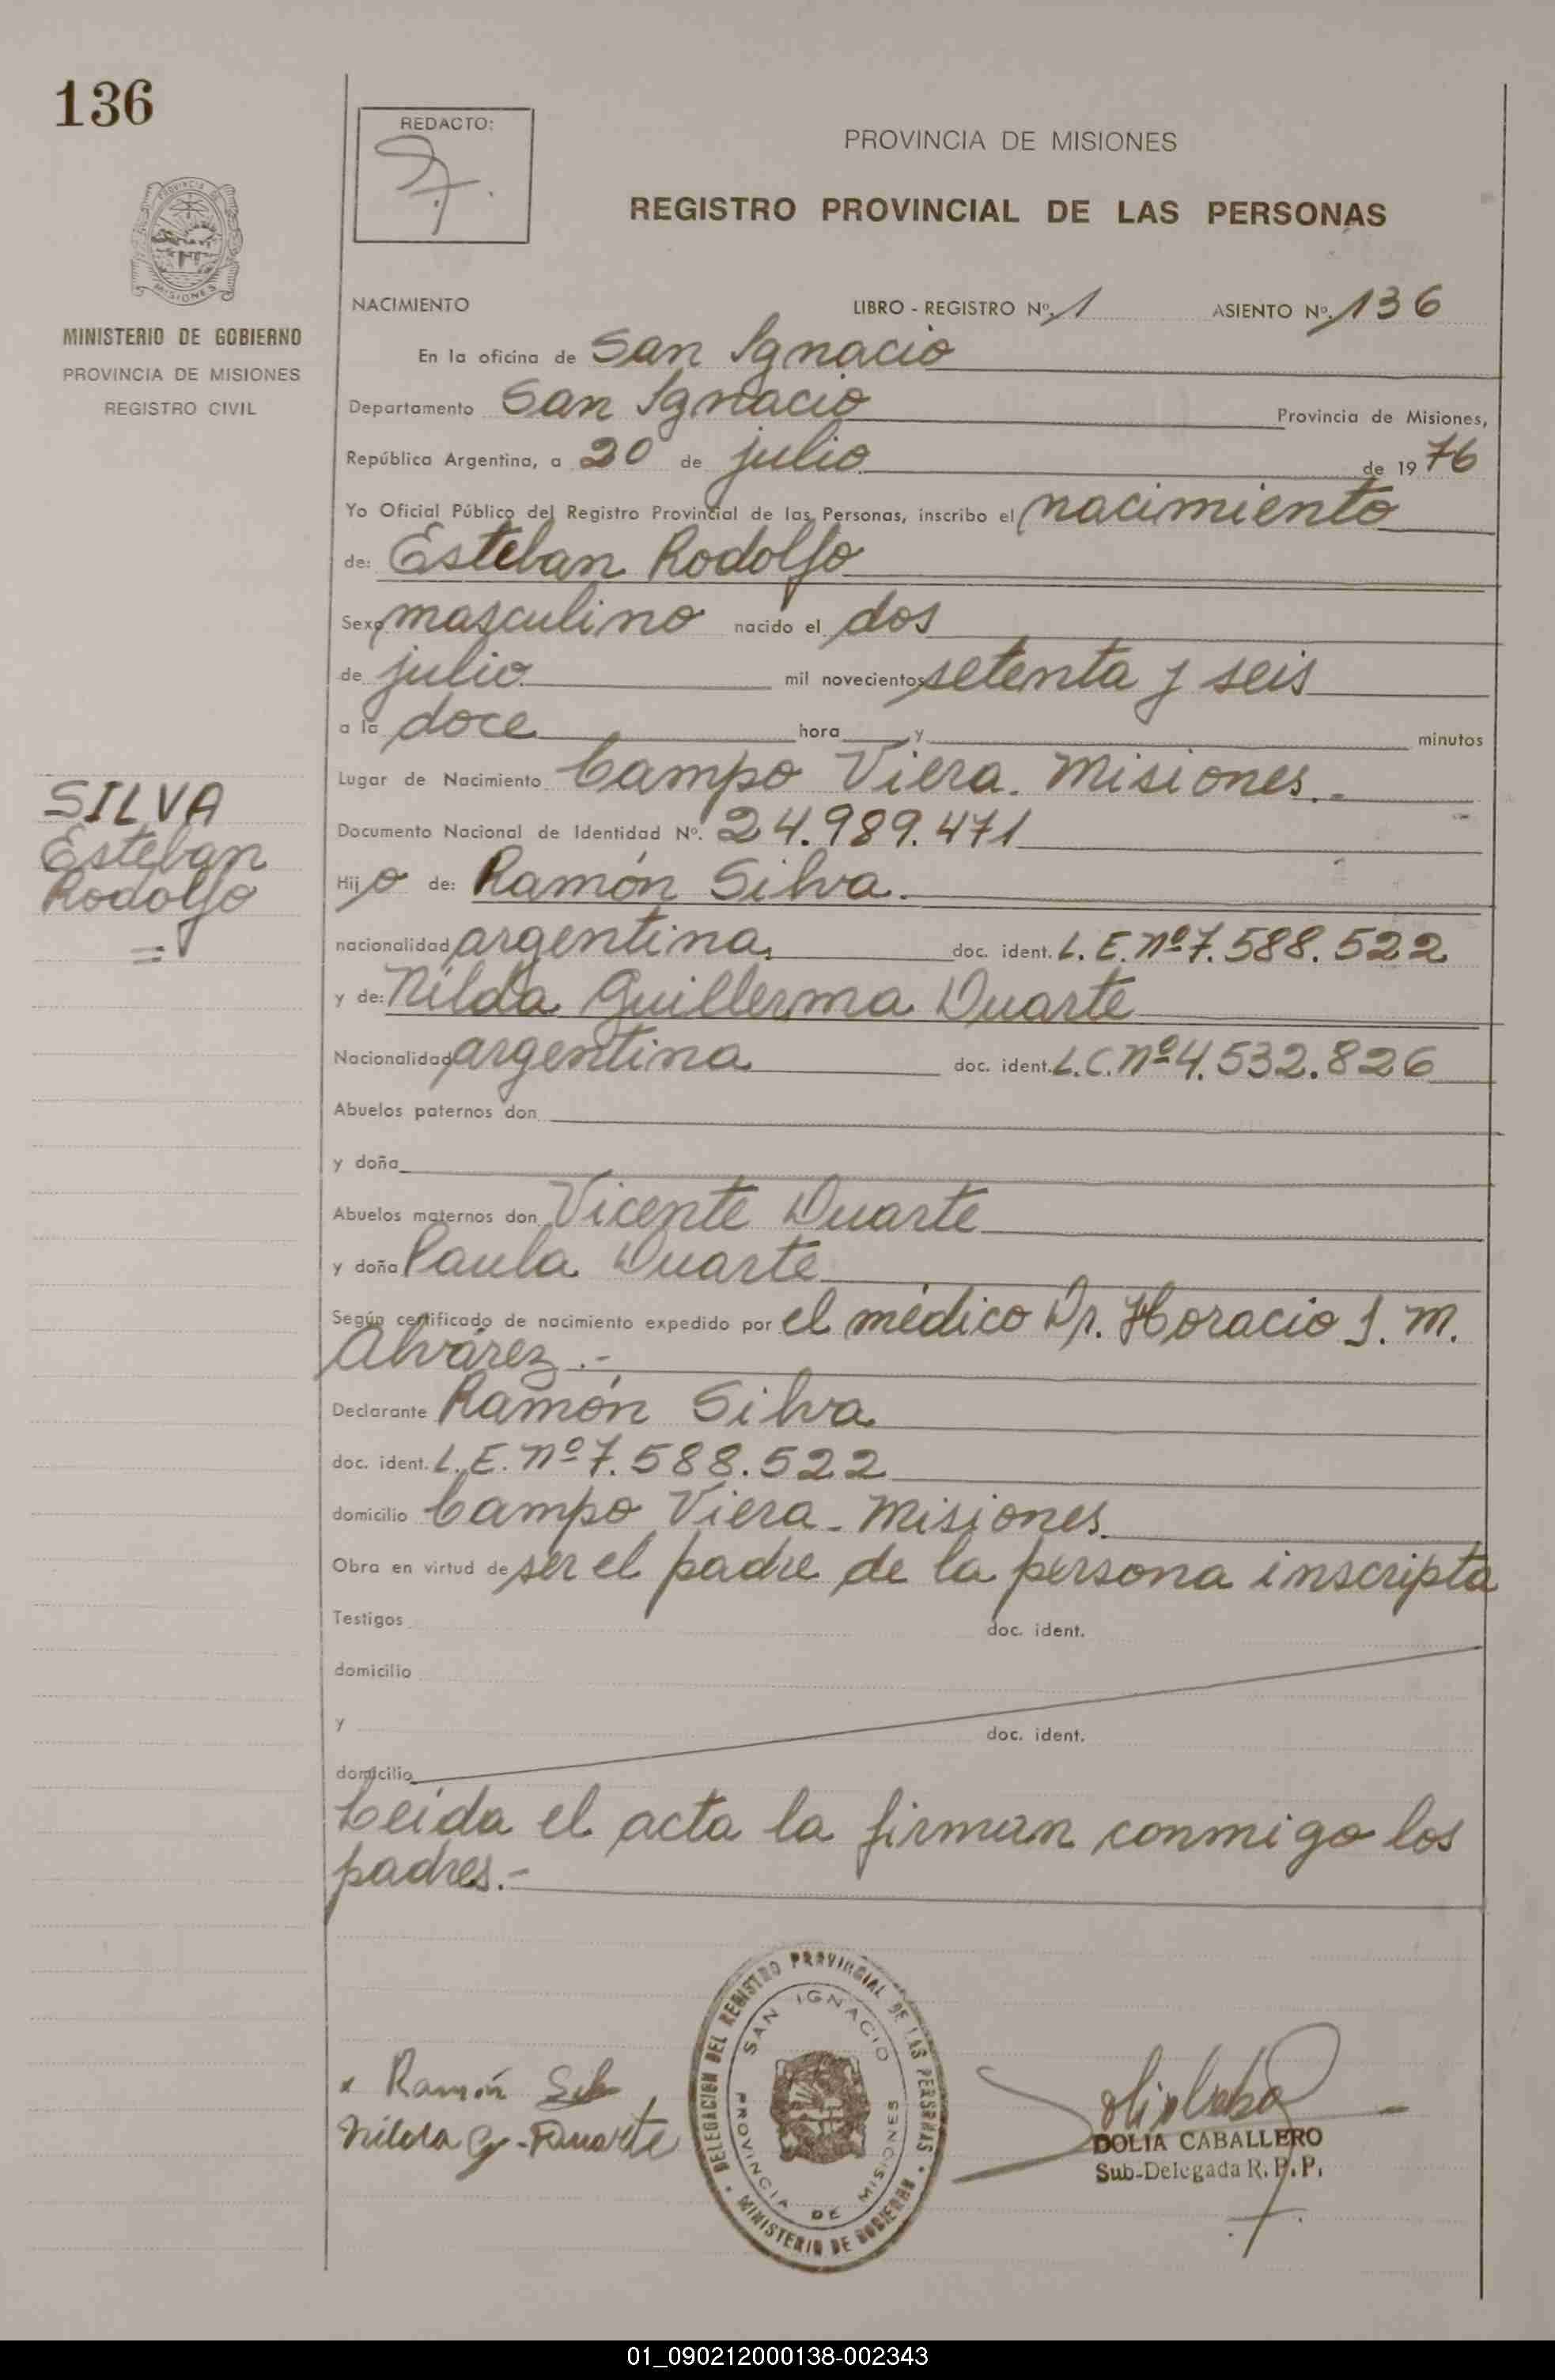 136
REDACTO:
PROVINCIA DE MISIONES
REGISTRO PROVINCIAL DE LAS PERSONAS
PROVINCIA DE
MISIONES
MINISTERIO DE GOBIERNO
PROVINCIA DE MISIONES
REGISTRO CIVIL
NACIMIENTO LIBRO - REGISTRO Nº. 1 ASIENTO Nº. 136
En la oficina de San Ignacio
Departamento San Ignacio Provincia de Misiones,
República Argentina, a 20 de julio de 1976
Yo Oficial Público del Registro Provincial de las Personas, inscribo el nacimiento
de: Esteban Rodolfo
Sexo masculino nacido el dos
de julio mil novecientos setenta y seis
a la doce hora y minutos
Lugar de Nacimiento Campo Viera. Misiones.-
SILVA
Esteban
Rodolfo
=
Documento Nacional de Identidad Nº. 24.989.471
Hijo de: Ramón Silva.
nacionalidad argentina. doc. ident. L.E.Nº7.588.522
y de: Nilda Guillerma Duarte
Nacionalidad argentina doc. ident. L.C.Nº4.532.826
Abuelos paternos don
y doña
Abuelos maternos don Vicente Duarte
y doña Paula Duarte
Según certificado de nacimiento expedido por el médico Dr. Horacio J. M.
Alvárez.-
Declarante Ramón Silva
doc. ident. L.E. Nº7.588.522
domicilio Campo Viera - Misiones
Obra en virtud de ser el padre de la persona inscripta
Testigos doc. ident.
domicilio
y doc. ident.
domicilio
Leída el acta la firman conmigo los
padres.-
x Ramón Silva
Nilda G. Duarte
DELEGACION DEL REGISTRO PROVINCIAL DE LAS PERSONAS
MINISTERIO DE GOBIERNO
SAN IGNACIO
PROVINCIA DE MISIONES
DOLIA CABALLERO
Sub-Delegada R.P.P.
01_090212000138-002343